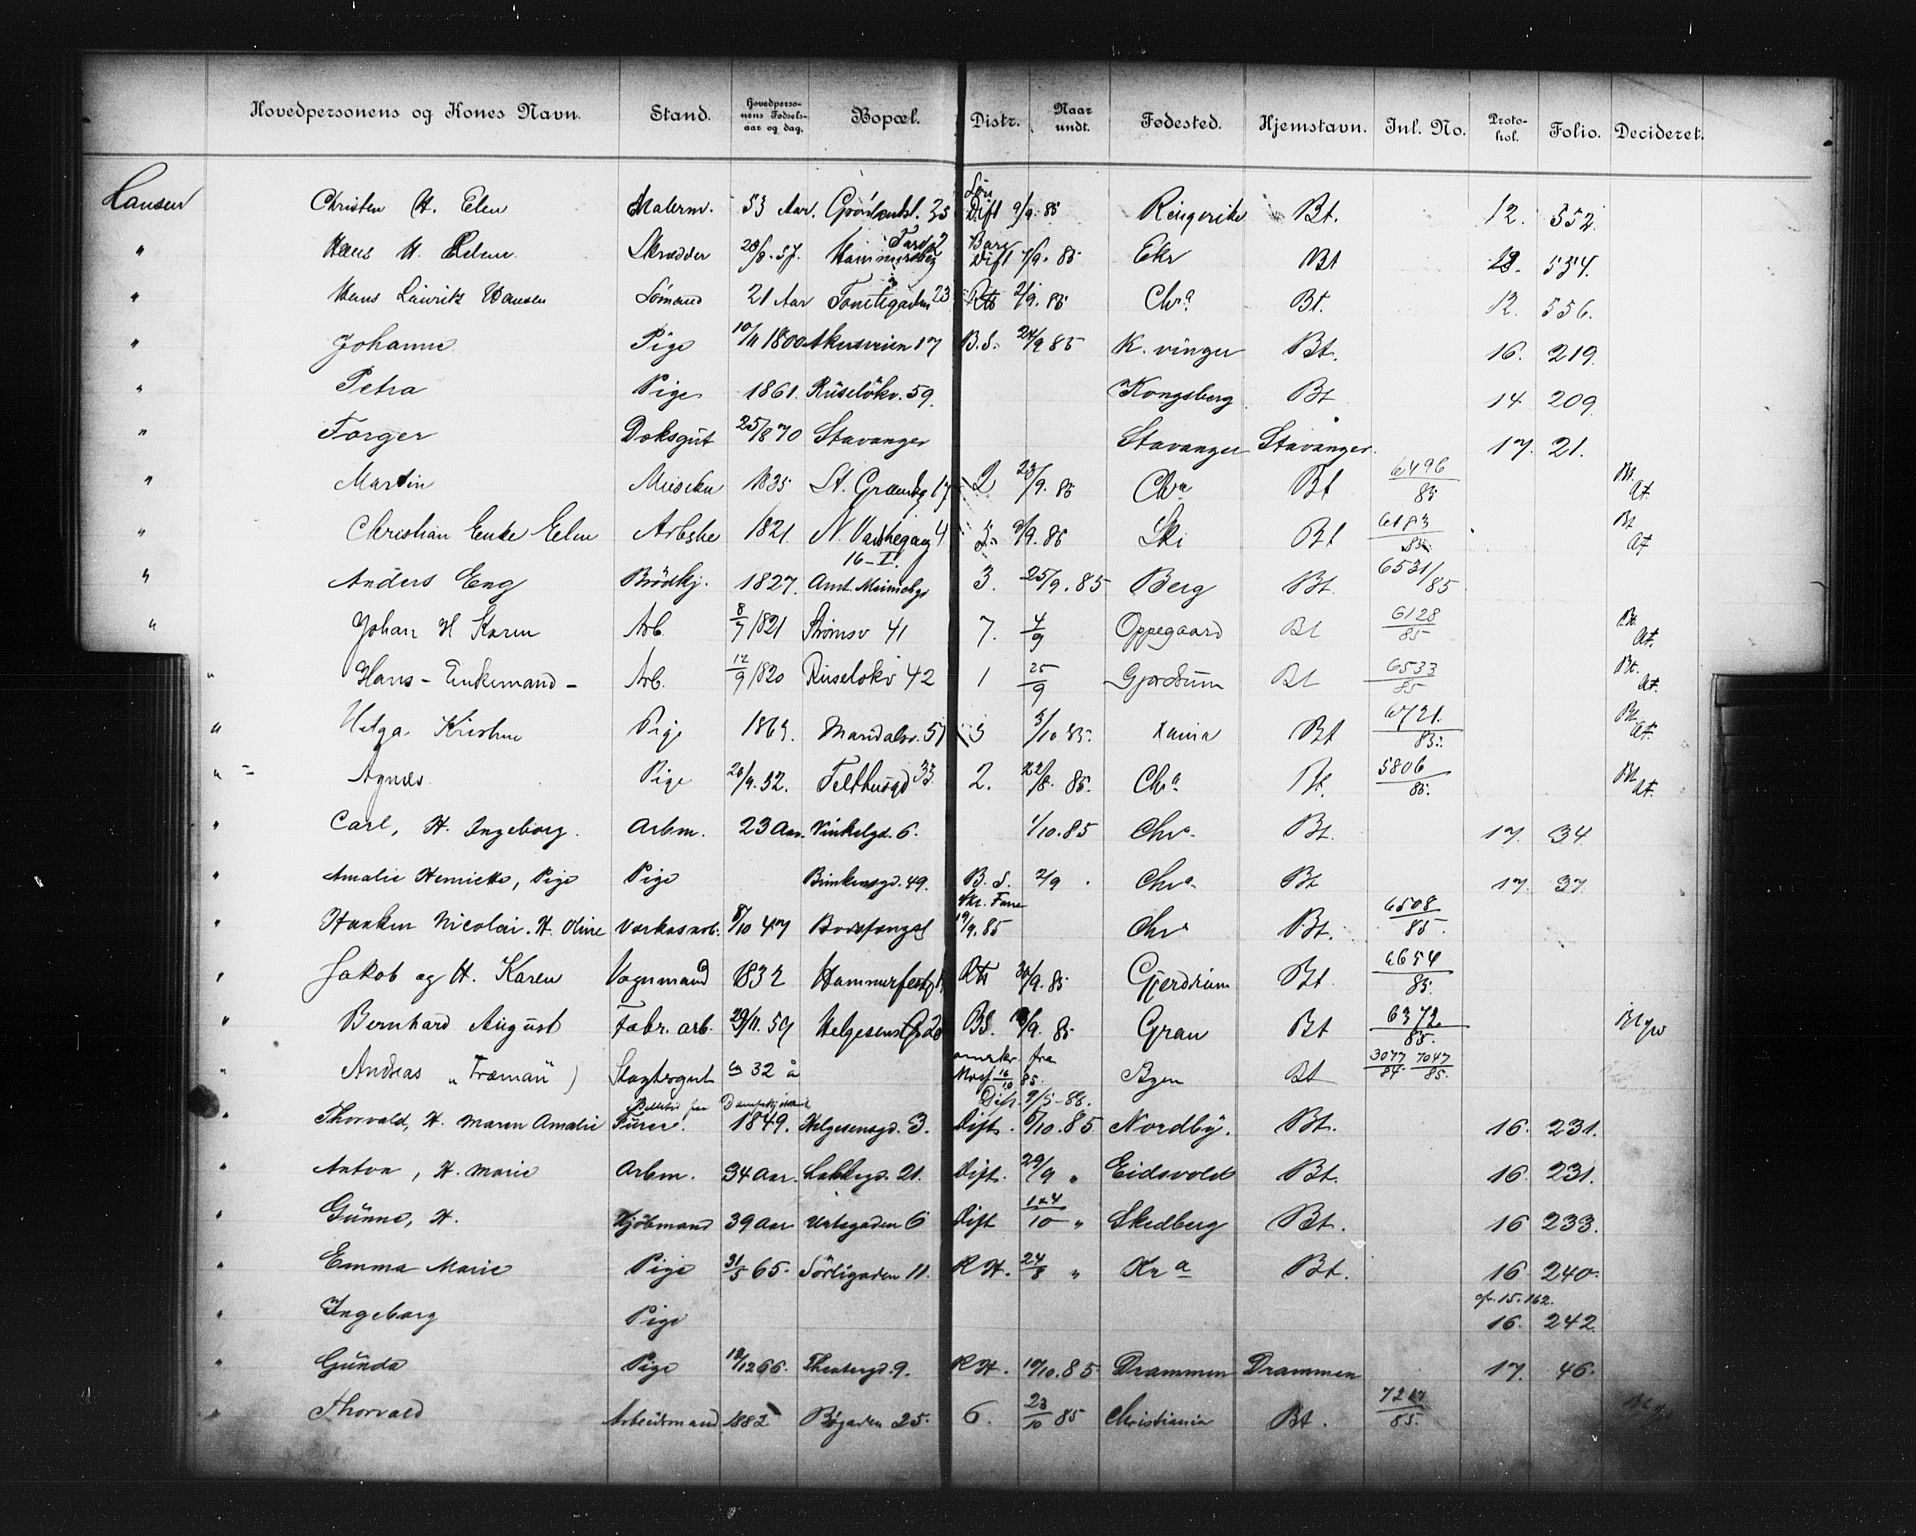 Hovedpersonens og Kones Navn. Stand. Hovedperso-nens Fødsels-aar og dag. Bopæl. Distr. Naar undt. Fødested. Hjemstavn. Inl. No. Proto-kol. Folio. Decideret.
Hansen Christen H. Elen Malerm. 53 Aar. 35 Dist 9/9. 85 Ringerike Bt. 12. 552.
" Hans H. Skrædder Hammersbg Dist 7/9. 85 Eker Bt 534.
" Hans Lauritz Hansen Sømand 21 Aar 23 2/9. 85 Chra Bt. 12. 556.
" Johanne Pige 10/11 1800 Akersveien 17 B.S. 24/9 85 K. vinger Bt. 16. 219.
" Petra Pige 1861. Ruseløkv. 59. Kongsberg Bt 14 209.
" Torger Doksgut 25/8 70 Stavanger Stavanger Stavanger. 17. 21.
" Martin 1835 St. 17 2 23/9. 85 Chra Bt 6496/85 Bt. At.
" Christian Enke Elen 1821. N. 4 9/9. 85 Ski Bt 6183/85 Bt At
" Anders Eng Brødkj. 1827. 16-I. Amt. 3. 25/9. 85 Berg Bt. 6531/85
" Johan H Karen Arb. 8/7 1821 Strømsv 41 7. 4/9 Oppegaard Bt 6128/85 Bt. At.
" Hans - Enkemand - Arb. 12/9 1820 Ruseløkv 42 1 25/9 Gjerdrum Bt 6533/85 Bt. At.
" Helga Kristine Pige Maridalsv. 3/10 85. Xania Bt 6721./85. Bt. At.
" Agnæs. Pige 52. Felthusgd 33 2. 22/8. 85. Chra. Bt. 5806/85. Bt At.
" Carl, H. Ingeborg. Arbm. 23 Aar. Vinkelgd. 6. 1/10. 85 Chra. Bt. 17. 34.
" Amalie Henriette, Pige Pige 49. B. S. 2/9. Chra. Bt 17. 37.
" Haaken Nicolai. H. Oline Værkasarb. 8/10 47 Bodsfængsl 19/9. 85 Chra Bt. 6508/85.
" Jakob og H. Karen Vognmand 1832 Hammerfestg 30/9. 85 Gjerdrum Bt. 6654/85.
" Bernhard August Fabr. arb. 29/11. 59 Helgesens G 20 BS. 85 Gran Bt 6372./85.
" Andreas „Træman") Slagtergut 32 å fra Moss 16/10 85. Bt 3077/84. 7047/85.
" Thorvald, H. Maren Amalie 9/5-88. 1849. Helgesensgd. 3. Dist. /10. 85 Nordby. Bt. 16. 231.
" Anton, H. Marie Arbm. 34 Aar. Lakkegd. 21. Dist. 29/9 " Eidsvold Bt. 16. 231.
" Gunne, H. Kjøbmand 39 Aar Urtegaden 6 Dist /10 " Skedberg Bt. 16 233.
" Emma Marie Pige 31/5 65. Sørligaden 11. R H. 24/8 " Kra Bt. 16 240.
" Ingeborg Pige cfr. 15. 162. 16. 242.
" Gunda Pige 66. Theatergd. 9. R H. 17/10. 85 Drammen Drammen 17. 46.
" Thorvald Arbeidsmand 1882 Bøgaden 25. 6. 23/10 85 Christiania Bt. 85.